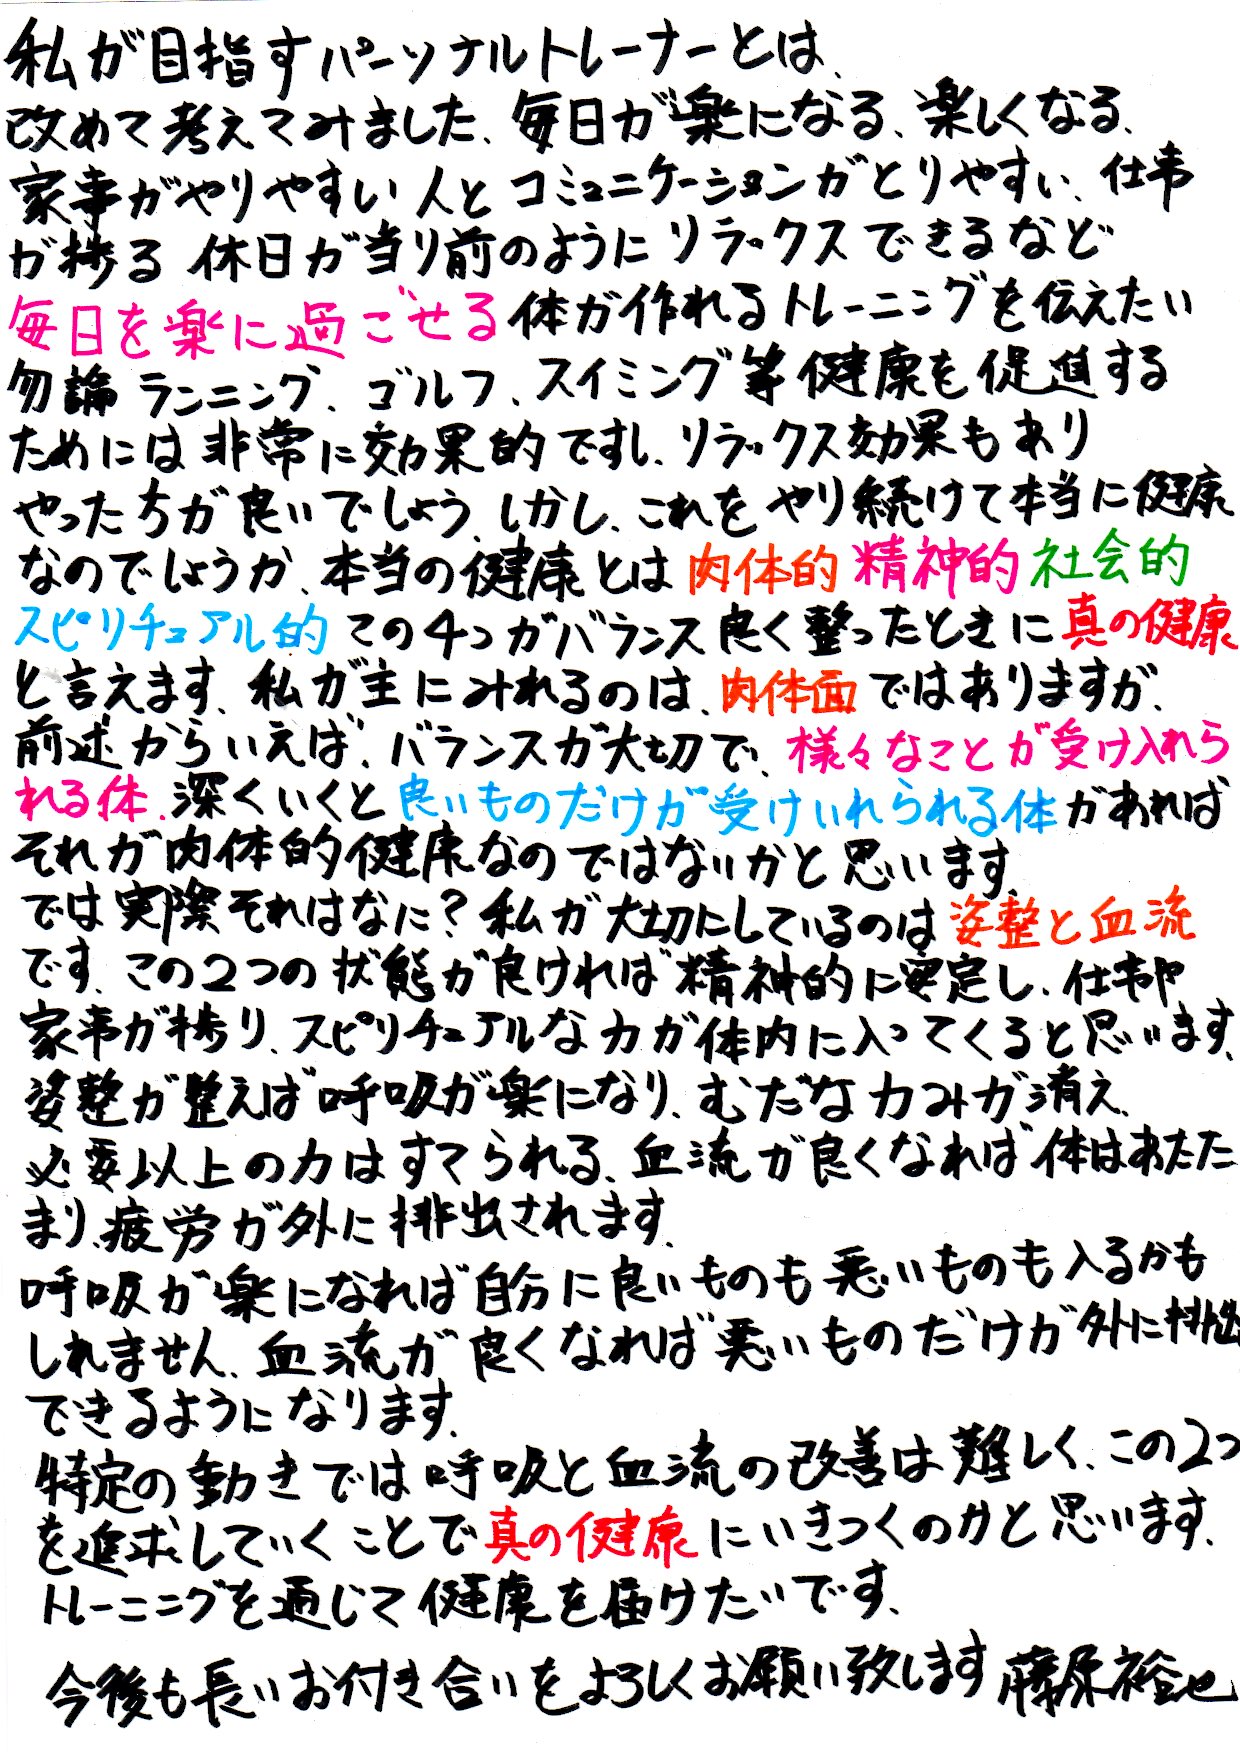 私が目指すパーソナルトレーナーとは、
改めて考えてみました、毎日が楽になる、楽しくなる、
家事がやりやすい人とコミュニケーションがとりやすい、仕事
が捗る 休日が当り前のようにリラックスできるなど
毎日を楽に過ごせる体が作れるトレーニングを伝えたい
勿論ランニング、ゴルフ、スイミング等健康を促進する
ためには非常に効果的ですし、リラックス効果もあり
やった方が良いでしょう、しかし、これをやり続けて本当に健康
なのでしょうか、本当の健康とは肉体的 精神的 社会的
スピリチュアル的 この4つがバランス良く整ったときに真の健康
と言えます、私が主にみれるのは、肉体面ではありますが、
前述からいえば、バランスが大切で、様々なことが受け入れら
れる体、深くいくと良いものだけが受けいれられる体があれば
それが肉体的健康なのではないかと思います、
では実際それはなに?私が大切にしているのは姿整と血流
です、この2つの状態が良ければ精神的に安定し、仕事や
家事が捗り、スピリチュアルな力が体内に入ってくると思います、
姿整が整えば呼吸が楽になり、むだな力みが消え、
必要以上の力はすてられる、血流が良くなれば体はあたた
まり、疲労が外に排出されます、
呼吸が楽になれば自分に良いものも悪いものも入るかも
しれません、血流が良くなれば悪いものだけが外に排出
できるようになります、
特定の動きでは呼吸と血流の改善は難しく、この2つ
を追求していくことで真の健康にいきつくのかと思います、
トレーニングを通じて健康を届けたいです、
今後も長いお付き合いをよろしくお願い致します 藤原裕也